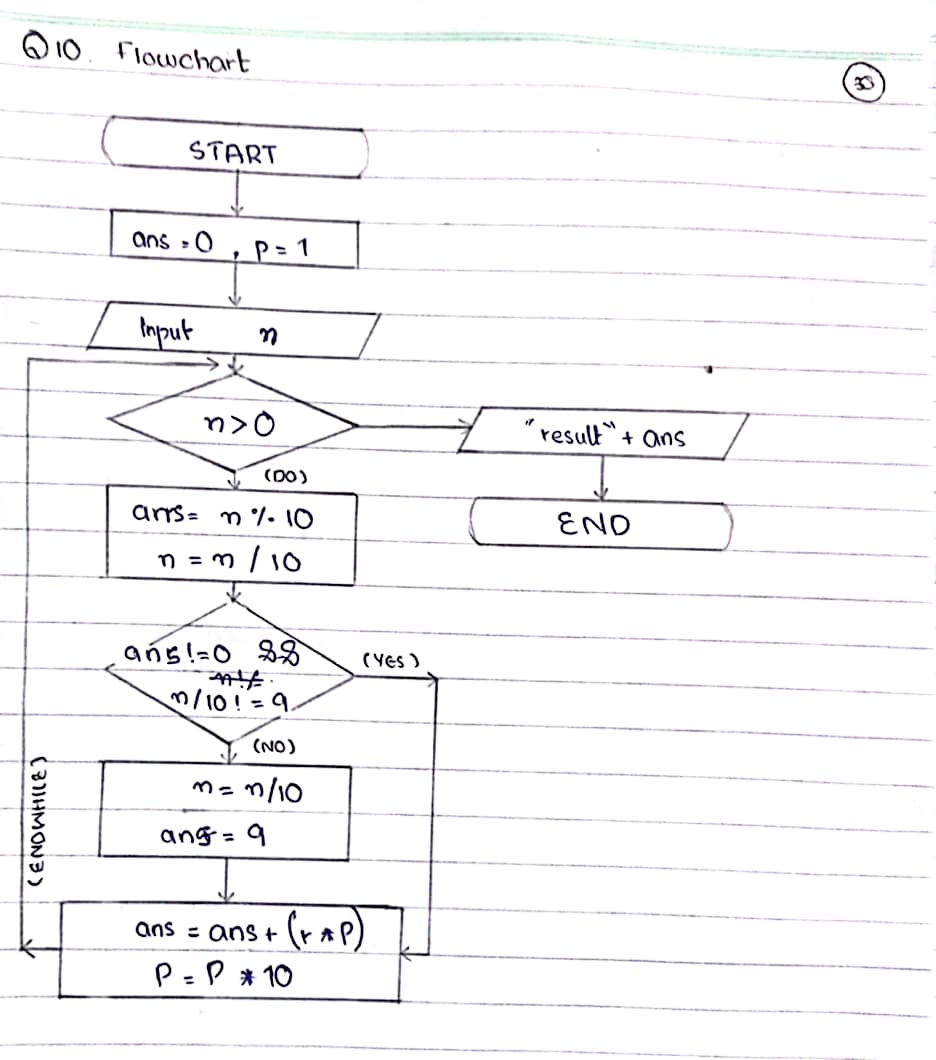 Q10. Flowchart
38
START
ans = 0, P = 1
Input n
n > 0
"result" + ans
(DO)
END
ans = n % 10
n = n / 10
ans != 0 &&
n/10 != 9
(YES)
(NO)
n = n/10
ans = 9
(ENDWHILE)
ans = ans + (r * P)
P = P * 10